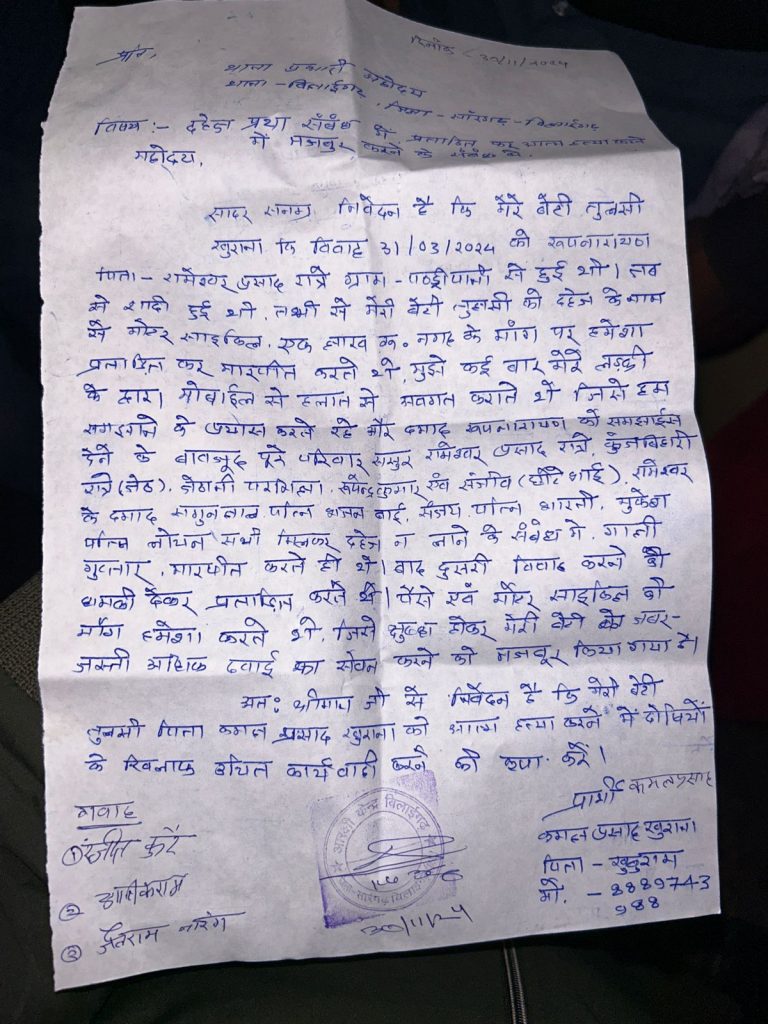 प्रति,
दिनांक (30/11/2024
थाना प्रभारी महोदय
थाना - बिलाईगढ़, जिला - सारंगढ़ - बिलाईगढ़
विषय :- दहेज प्रथा संबंध से प्रताड़ित कर आत्म हत्या करने
में मजबुर करने के संबंध में.
महोदय,
सादर सनम्र निवेदन है कि मेरे बेटी तुलसी
खुराना कि विवाह 31/03/2024 को रूपनारायण
पिता - रामेश्वर प्रसाद रात्रे ग्राम - से हुई थी। जब
से शादी हुई थी, तभी से मेरी बेटी तुलसी को दहेज के नाम
से मोटर साइकिल, एक लाख रु. नगद के मांग पर हमेशा
प्रताड़ित कर मारपीट करते थे, मुझे कई बार मेरे लड़की
के द्वारा मोबाईल से हलात से अवगत कराते थे जिसे हम
समझाने के प्रयास करते रहे और दमाद रूपनारायण को समझाईस
देने के बावजुद पूरे परिवार ससुर रामेश्वर प्रसाद रात्रे, कुंजबिहारी
रात्रे (जेठ), जेठानी कुमार एंव संजीव (छोटे भाई), रामेश्वर
के दमाद पत्नि बाई, संजय पत्नि आरती, मुकेश
पत्नि लोचन सभी मिलकर दहेज न लाने के संबंध में, गाली
गुल्तार, मारपीट करते ही थे। बाद दुसरी विवाद करने की
धमकी देकर प्रताड़ित करते थे। पैसे एवं मोटर साइकिल की
माँग हमेशा करते थे, जिसे क्षुब्ध होकर मेरी बेटी को जबर-
जस्ती अधिक दवाई का सेवन करने को मजबूर किया गया है।
अत: श्रीमान जी से निवेदन है कि मेरी बेटी
तुलसी पिता कमल प्रसाद खुराना को आत्म हत्या करने में दोषियों
के खिलाफ उचित कार्यवाही करने की कृपा करें।
प्रार्थी कमलप्रसाद
कमल प्रसाद खुराना
पिता - खुकुराम
मो. - 8889743
988
गवाह
① रंजीत कुर्रे
②
③ नारंग
आरक्षी केन्द्र बिलाईगढ़
30/11/24